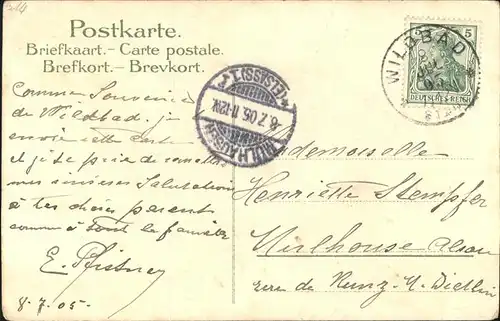 Postkarte.
Briefkaart.- Carte postale.
Brefkort.- Brevkort.
WILDBAD
5
DEUTSCHES REICH
MÜLHAUSEN (ELSASS) 1.
8.7.05.11-12V.
Comme Souvenir
de Wildbad, je
envoie cette carte
et je te prie de
mes sincères Salutations
à tes chers parents
comme à toute la famille
E.
8.7.05-
Mademoiselle
Henriette Stempfer
Mulhouse Alsace